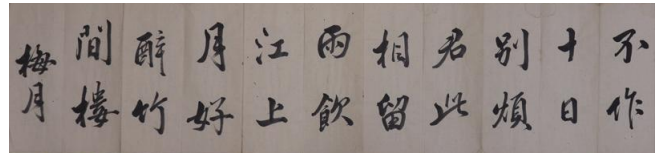 不作
十日
別煩
君此
相留
兩飲
江上
月好
醉竹
間樓
梅月